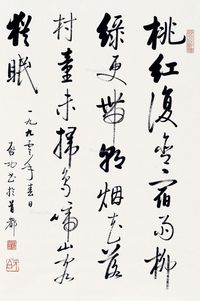 桃紅復含宿雨柳
綠更帶朝烟花落
村童未掃鳥啼山客
猶眠
一九九零年春日
啟功書於首都